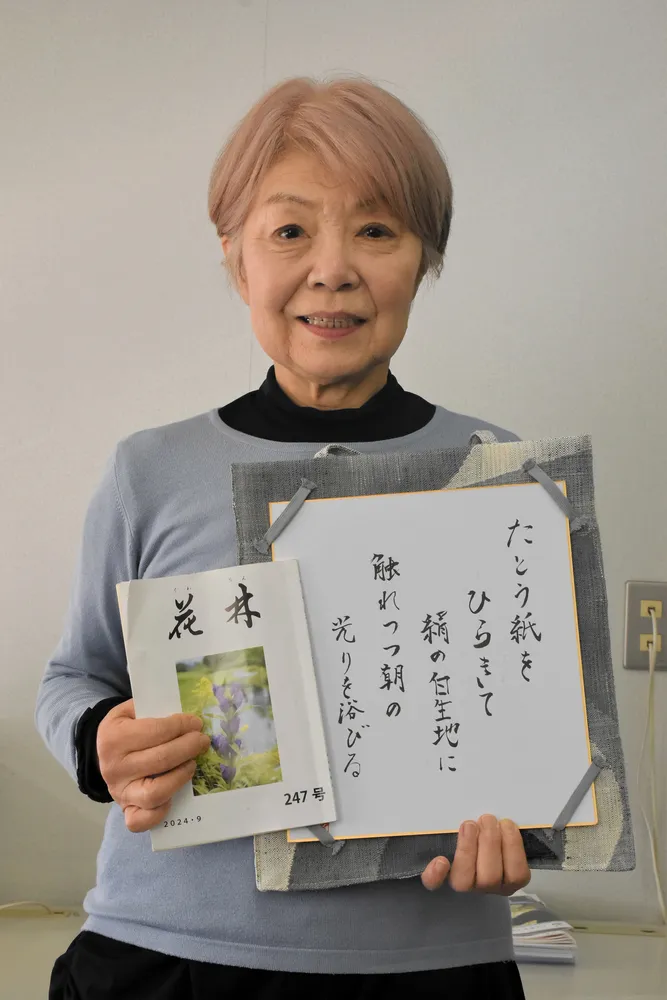 花林
247号
2024・9
たとう紙を
ひらきて
絹の白生地に
触れつつ朝の
光りを浴びる